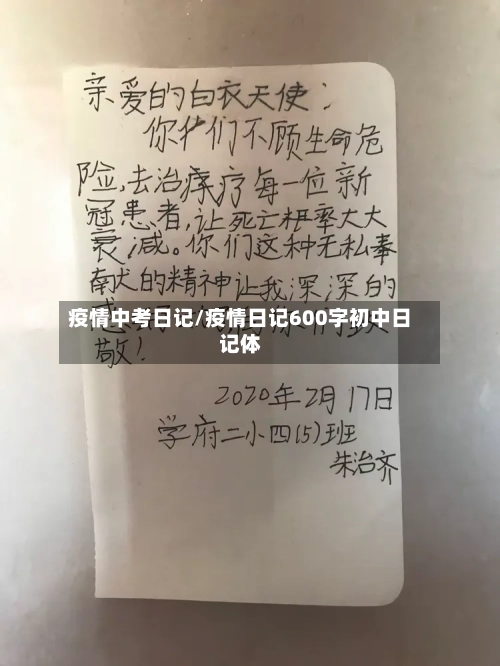 亲爱的白衣天使：
你们不顾生命危
险，去治疗每一位新
冠患者，让死亡率大大
衰减。你们这种无私奉
献的精神让我深深的
疫情中考日记/疫情日记600字初中日
记体
敬！
2020年2月17日
学府二小四(5)班
朱治齐